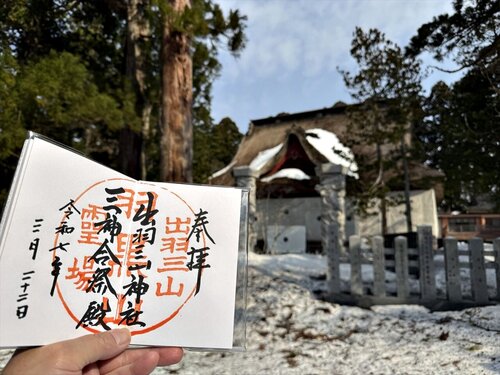 奉拝
出羽三山
出羽三山神社
羽黒山
三神合祭殿
霊場
令和七年
三月二十二日